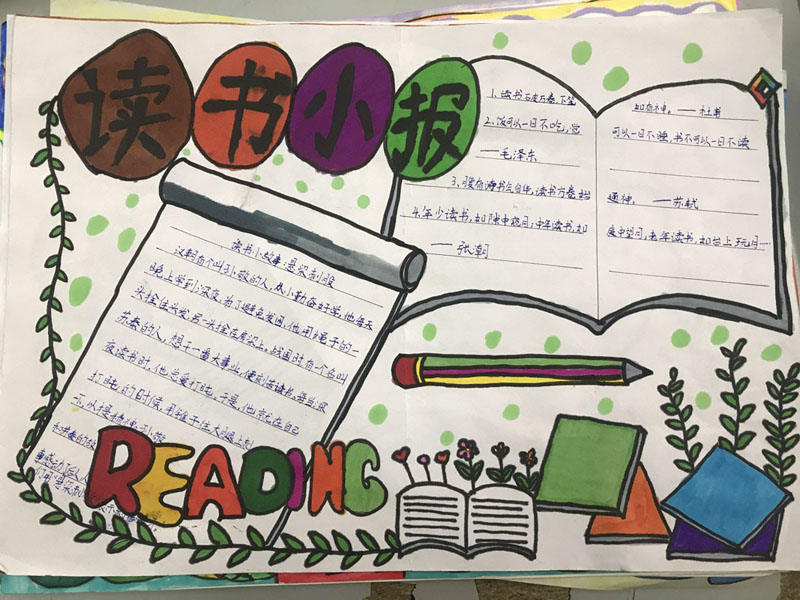 读书小报
1、读书万卷,下笔
如有神。——杜甫
2、饭可以一日不吃,觉
可以一日不睡,书不可以一日不读
——毛泽东
3、腹有诗书气自华,读书万卷始
通神。 ——苏轼
4、年少读书,如隙中窥月;中年读书,如
庭中望月;老年读书,如台上玩月
——张潮
读书小故事:悬梁刺股
汉朝有个叫孙敬的人,从小勤奋好学,他每天
晚上学到深夜,为了避免发困,他用绳子的一
头拴住头发,另一头拴在房梁上,战国时有个名叫
苏秦的人,想干一番大事业,便刻苦读书,每当深
夜读书时,他总爱打盹,于是,他就在自己
打盹的时候,用锥子往大腿上刺
READING